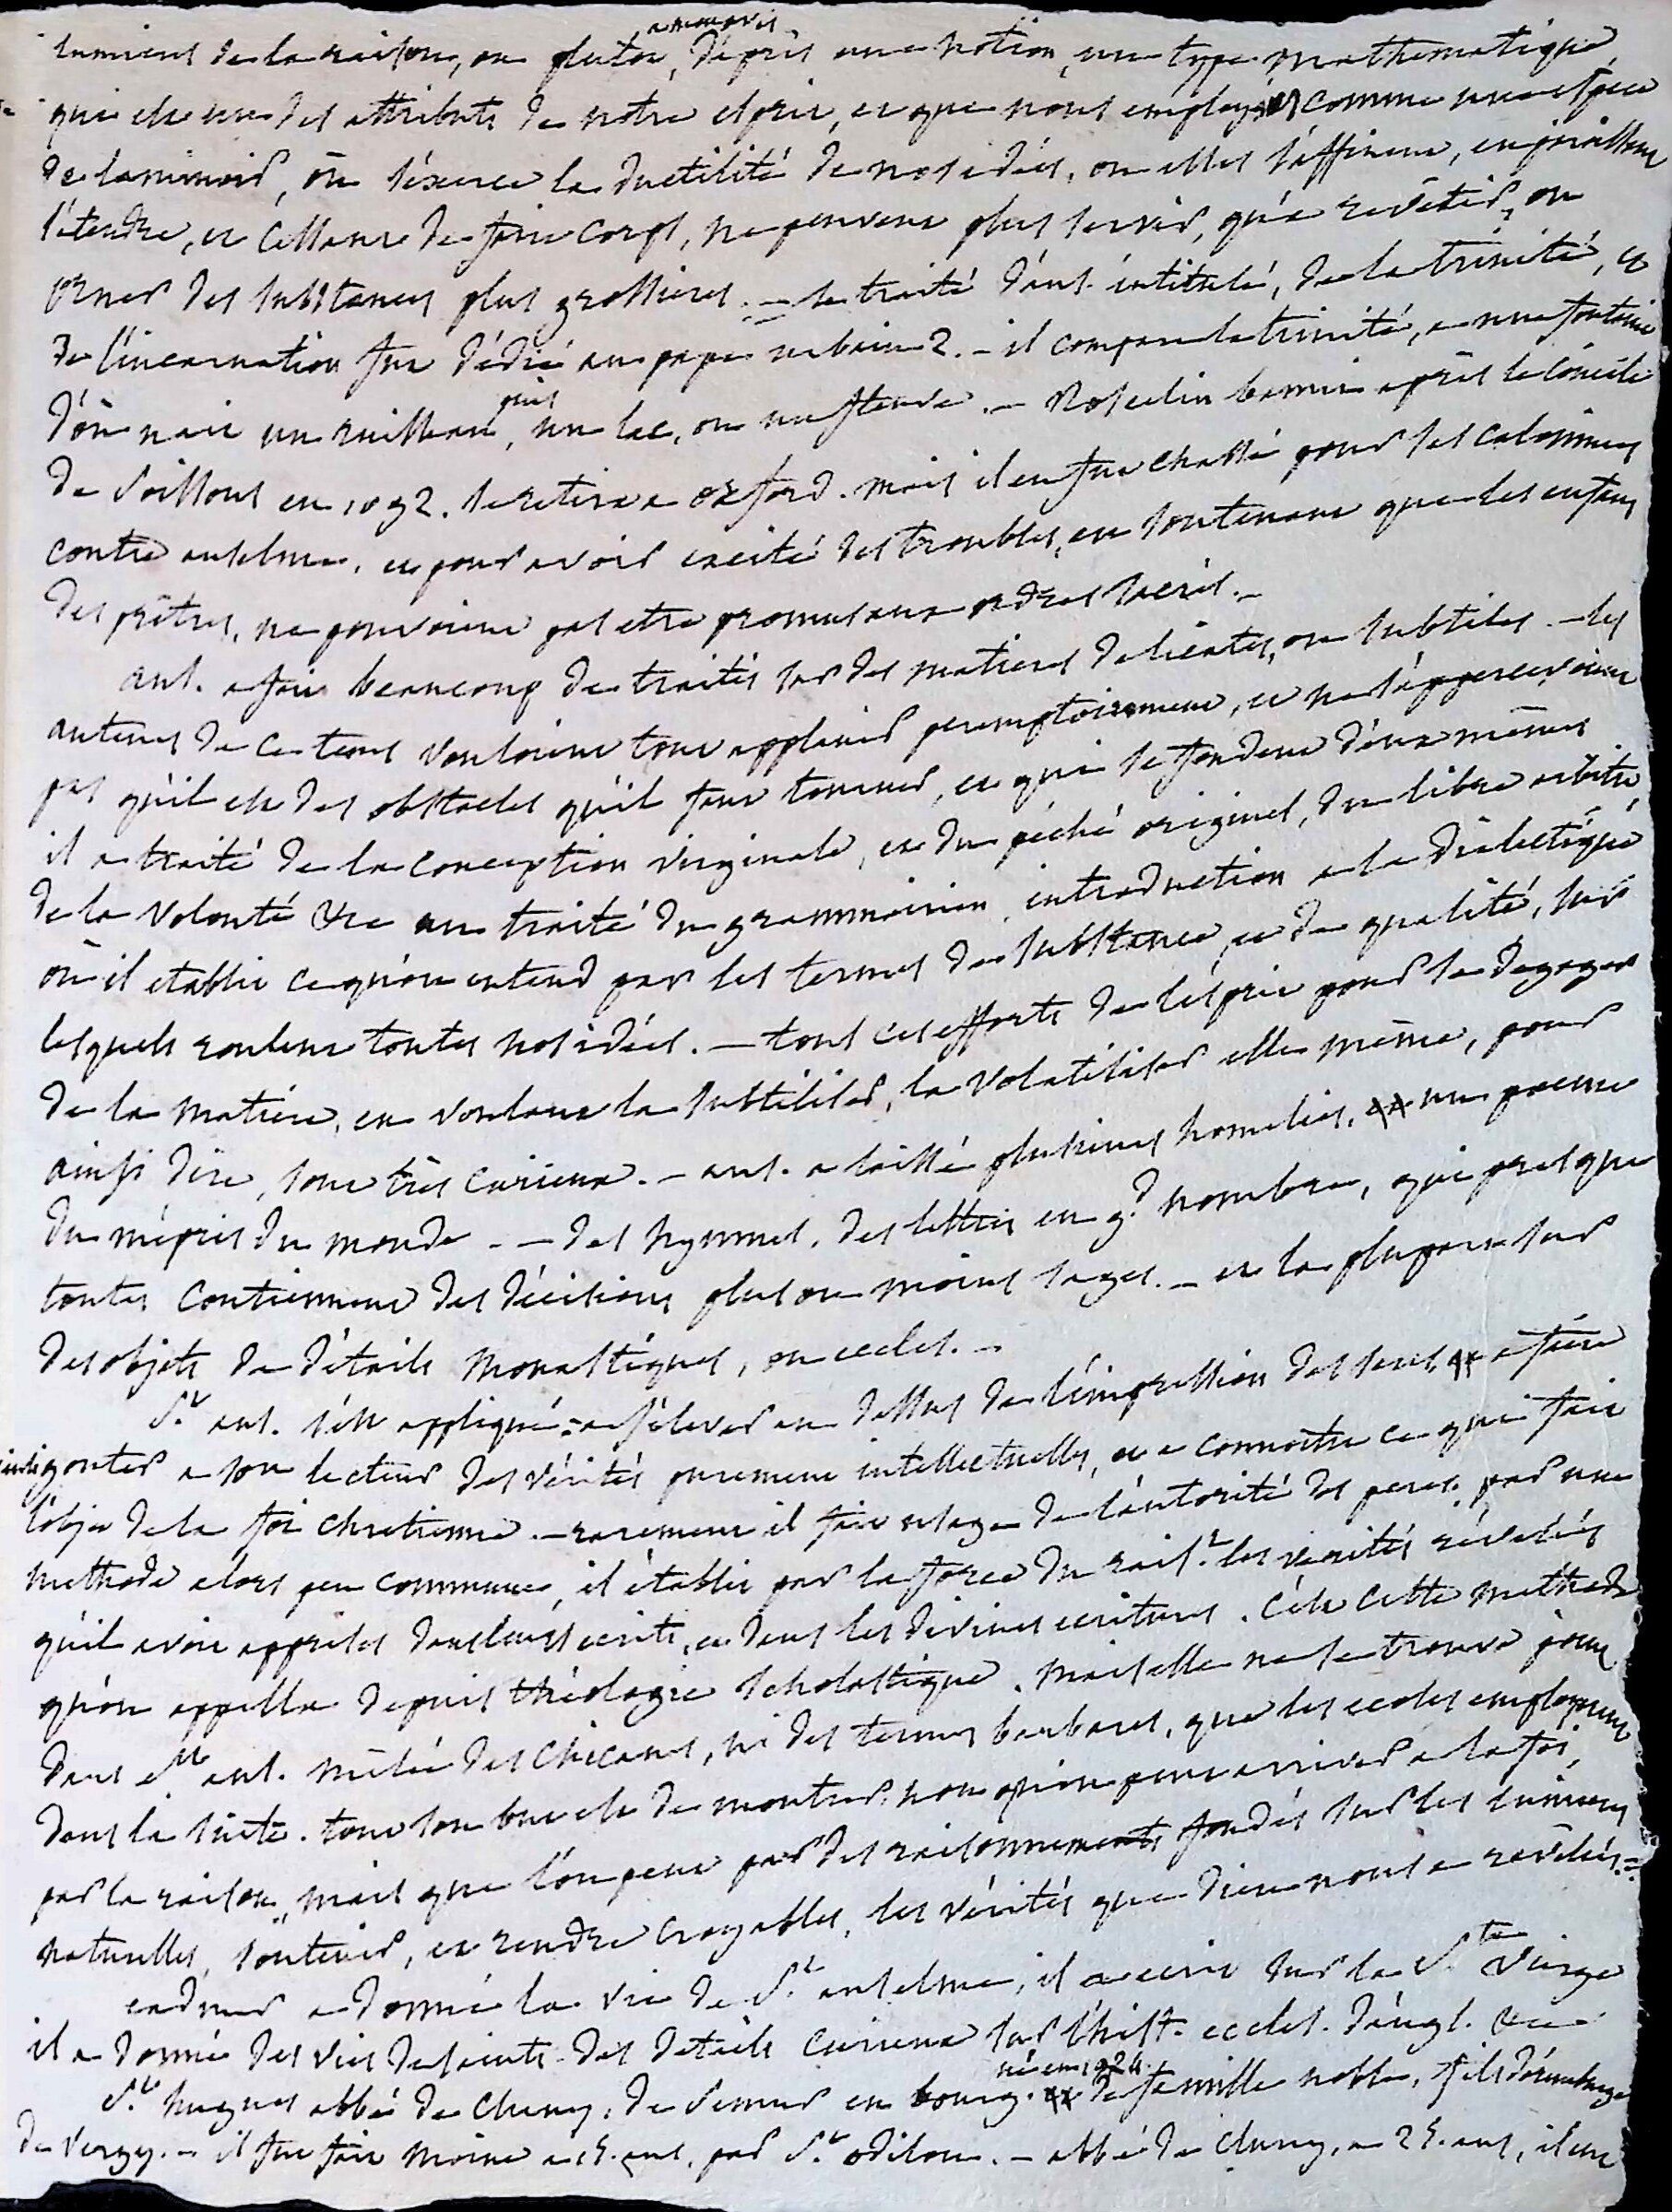 lumieres de la raison, ou plutot, d'après une notion, un type mathematique,
qui est un des attributs de notre esprit, et que nous employons comme une espece
de laminoir, où s'exerce la ductilité de nos idées, ou elles s'affinent, en paroissant
s'etendre, et cessant de faire corps, ne peuvent plus servir, qu'a revêtir, ou
orner des substances plus grossieres. — le traité d'ans. intitulé, de la trinité, et
de l'incarnation fut dédié au pape urbain 2. — il compare la trinité, a une fontaine
d'où nait un ruisseau, puis un lac, ou un fleuve. — Roscelin banni après le concile
de Soissons en 1092. se retira a oxford. mais il en fut chassé pour ses calomnies
contre anselme, et pour avoir excité des troubles, en soutenant que les enfans
des prêtres, ne pouvoient pas etre promus aux ordres sacrés. —
ans. a fait beaucoup de traités sur des matieres delicates, ou subtiles. — les
auteurs de ce tems vouloient tout applanir peremptoirement, et ne s'appercevoient
pas qu'il est des obstacles qu'il faut tourner, et qui se fondent d'eux mêmes
il a traité de la conception virginale, et du péché originel, du libre arbitre
de la volonté &c un traité du grammairien, introduction a la dialectique
où il etablit ce qu'on entend par les termes de substance, et de qualité, sur
lesquels roulent toutes nos idées. — tous ces efforts de l'esprit pour se degager
de la matière, en voulant la subtiliser, la volatiliser elle même, pour
ainsi dire, sont très curieux. — ans. a laissé plusieurs homelies, un poeme
du mépris du monde. — des hymnes, des lettres en gd. nombre, qui presque
toutes contiennent des décisions plus ou moins sages. — et la plupart sur
des objets de détails monastiques, ou eccles. —
St. ans. s'est appliqué a s'élever au dessus de l'impression des sens, a faire
gouter a son lecteur des vérités purement intellectuelles, et a connoitre ce qui fait
l'objet de la foi chretienne. — rarement il fait usage de l'autorité des peres. par une
methode alors peu commune, il établit par la force du raist. les verités révélées
qu'il avoit apprises dans leurs ecrits, et dans les divines ecritures. C'est cette methode
qu'on appella depuis théologie scholastique. mais elle ne se trouve point
dans St ans. mêlée des chicanes, ni des termes barbares, que les ecoles employerent
dans la suite. tout son but est de montrer, non qu'on peut arriver a la foi,
par la raison, mais que l'on peut par des raisonnements fondés sur les lumieres
naturelles, soutenir, et rendre croyables, les vérités que dieu nous a révélées. =
eadmer a donné la vie de St. anselme, il a ecrit sur la Ste Vierge
il a donné des vies de saints. des details curieux sur l'hist. eccles. d'angl. &c
St. hugues abbé de cluny, de semur en bourg. né en 1024. de famille noble, fils d'aremburge
de vergy. — il fut fait moine a 15. ans, par St. odilon. — abbé de cluny, a 25. ans, il eut